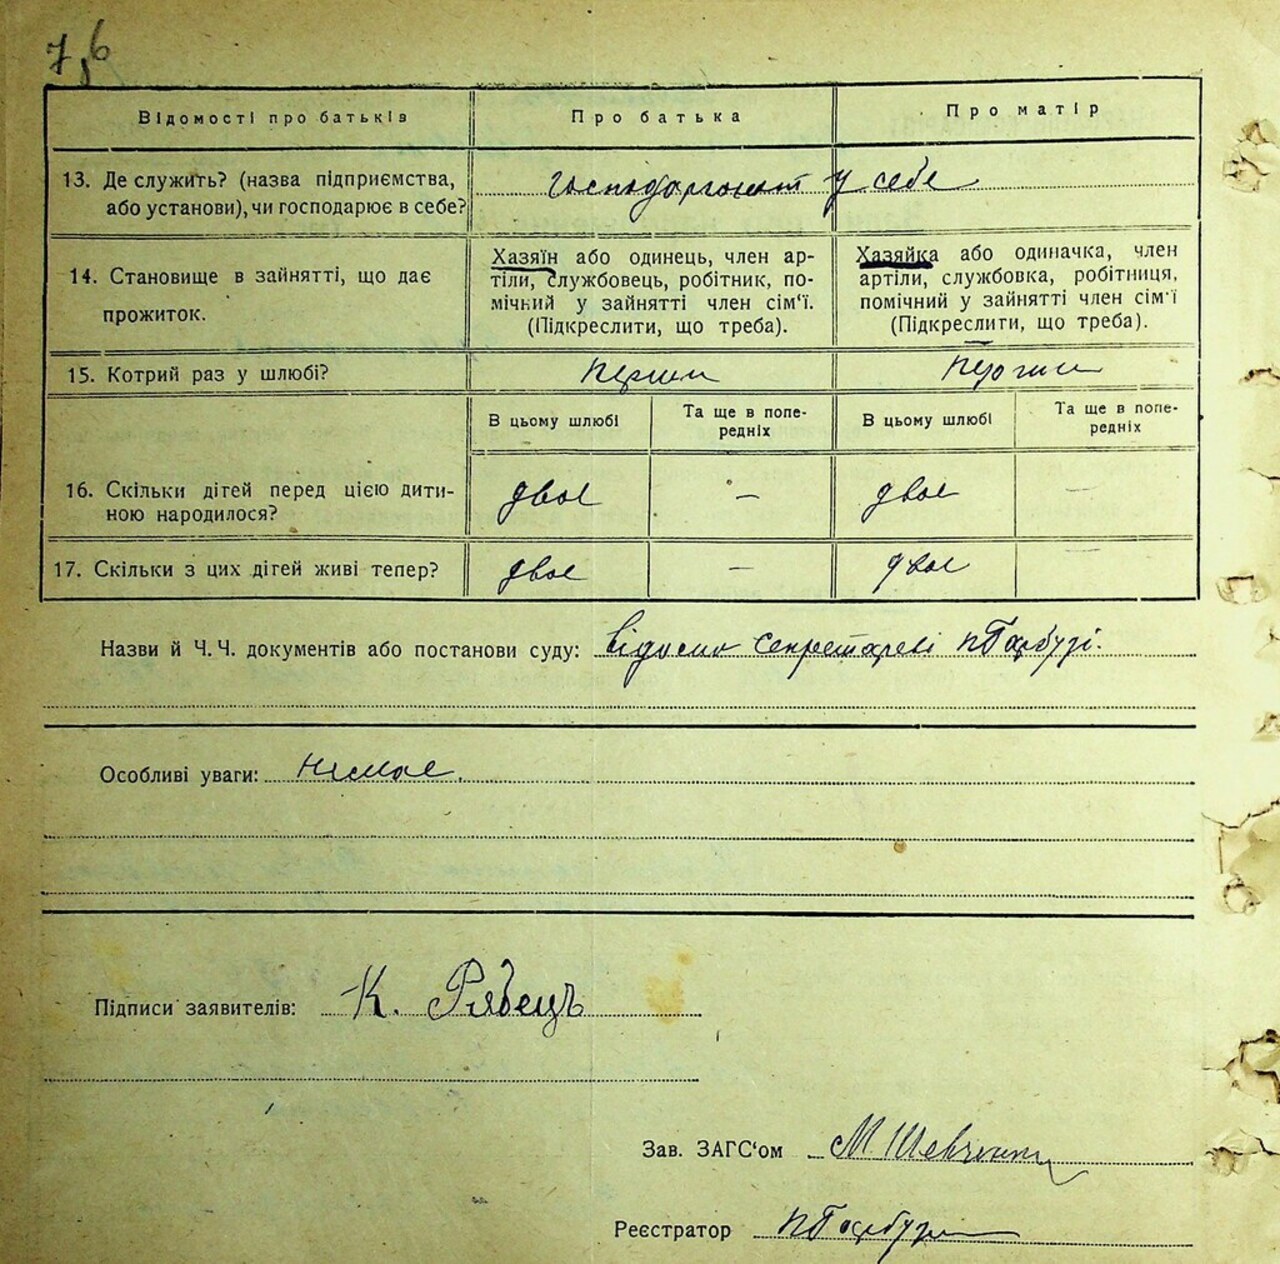 7,6
Відомості про батьків
Про батька
Про матір
13. Де служить? (назва підприємства,
або установи), чи господарює в себе?
господарюют у себе
14. Становище в зайнятті, що дає
прожиток.
Хазяїн або одинець, член ар-
тіли, службовець, робітник, по-
мічний у зайнятті член сім'ї.
(Підкреслити, що треба).
Хазяйка або одиначка, член
артіли, службовка, робітниця,
помічний у зайнятті член сім'ї
(Підкреслити, що треба).
15. Котрий раз у шлюбі?
В цьому шлюбі
Та ще в попе-
редніх
В цьому шлюбі
Та ще в попе-
редніх
16. Скільки дітей перед цією дити-
ною народилося?
двое
—
двое
—
17. Скільки з цих дітей живі тепер?
двое
—
двое
—
Назви й Ч. Ч. документів або постанови суду: відомо секретареві
Особливі уваги: немає.
Підписи заявителів: К. Рябець
Зав. ЗАГС'ом М. Шевченко
Реєстратор